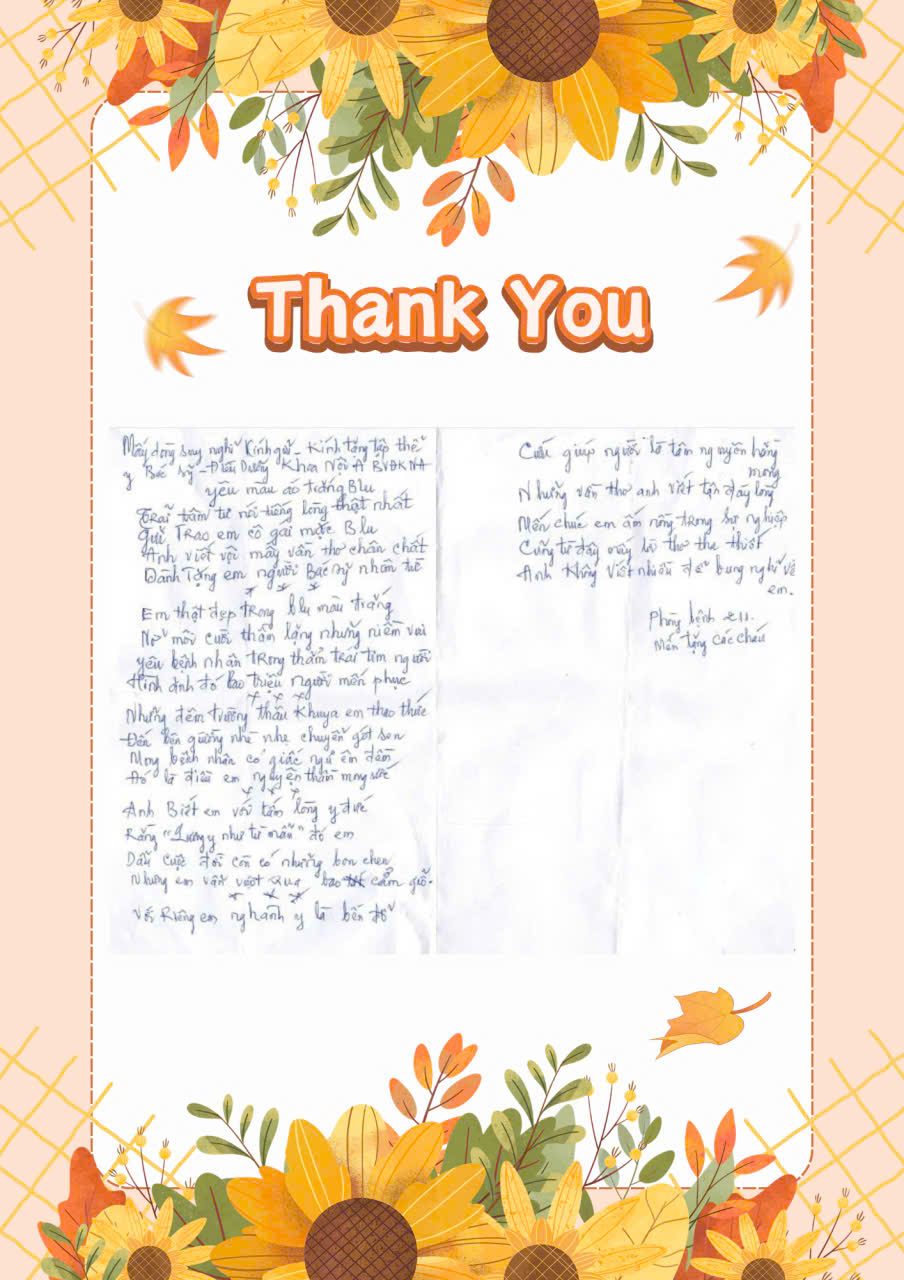 Thank You
Mấy dòng suy nghĩ Kính gửi - Kính tặng tập thể
y Bác sỹ - Điều Dưỡng Khoa Nội A BVĐKNA
yêu màu áo trắng Blu
Trải tâm tư nói tiếng lòng thật nhất
Gửi Trao em cô gái mặc Blu
Anh viết vội mấy vần thơ chân chất
Dành Tặng em người Bác sỹ nhân từ
Em thật đẹp trong blu màu trắng
Nở môi cười thầm lặng nhưng niềm vui
yêu bệnh nhân TRong thẳm trái tim người
Hình ảnh đó bao triệu người mến phục
Những đêm trường thâu Khuya em thao thức
Đến bên giường nhè nhẹ chuyển gót sen
Mong bệnh nhân có giấc ngủ êm đềm
Đó là điều em nguyện thầm mong ước
Anh Biết em với tấm lòng y đức
Rằng "Lương y như từ mẫu" đó em
Dẫu cuộc đời còn có những bon chen
Nhưng em vẫn vượt qua bao cám giỗ.
Với Riêng em nghành y là bến đỗ
Cứu giúp người là tâm nguyện hằng
mong
Những vần thơ anh viết tận đáy lòng
Mến chúc em ấm nồng trong sự nghiệp
Cũng từ đây mấy lời thơ tha thiết
Anh Không viết nhiều để bụng nghĩ về
em.
Phòng bệnh 211.
Mến tặng các cháu